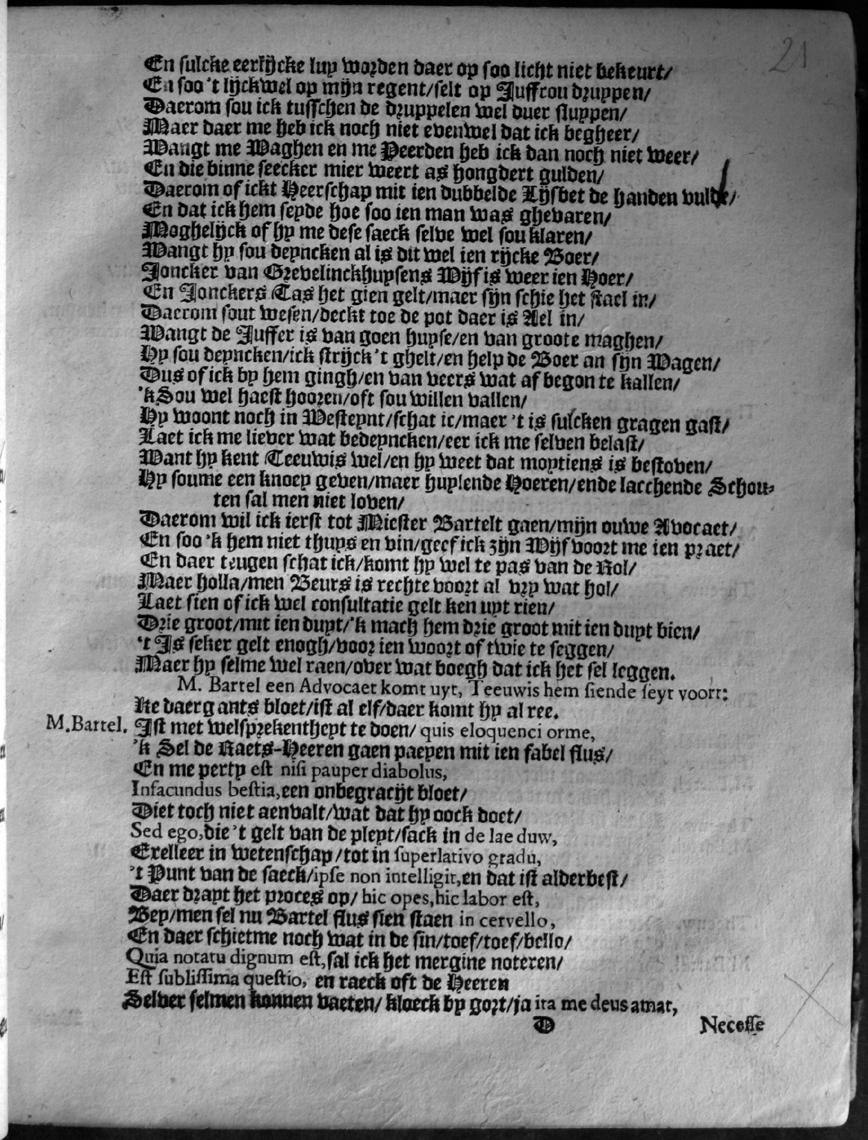 21
En sulcke eerlijcke luy worden daer op soo licht niet bekeurt/
En soo 't lijckwel op mijn regent/selt op Juffrou druppen/
Daerom sou ick tusschen de druppelen wel duer sluppen/
Maer daer me heb ick noch niet evenwel dat ick begheer/
Wangt me Waghen en me Peerden heb ick dan noch niet weer/
En die binne seecker mier weert as hongdert gulden/
Daerom of ickt Heerschap mit ien dubbelde Lijsbet de handen vulde/
En dat ick hem seyde hoe soo ien man was ghevaren/
Moghelijck of hy me dese saeck selve wel sou klaren/
Wangt hy sou deyncken al is dit wel ien rijcke Boer/
Joncker van Grevelinckhuysens Wijf is weer ien Hoer/
En Jonckers Tas het gien gelt/maer sijn schie het stael in/
Daerom sout wesen/deckt toe de pot daer is Ael in/
Wangt de Juffer is van goen huyse/en van groote maghen/
Hy sou deyncken/ick strijck 't ghelt/en help de Boer an sijn Wagen/
Dus of ick by hem gingh/en van veers wat af begon te kallen/
'k Sou wel haest hooren/oft sou willen vallen/
Hy woont noch in Westeynt/schat ic/maer 't is sulcken gragen gast/
Laet ick me liever wat bedeyncken/eer ick me selven belast/
Want hy kent Teeuwis wel/en hy weet dat moytiens is bestoven/
Hy soume een knoey geven/maer huylende Hoeren/ende lacchende Schou-
ten sal men niet loven/
Daerom wil ick ierst tot Miester Bartelt gaen/mijn ouwe Avocaet/
En soo 'k hem niet thuys en vin/geef ick zijn Wijf voort me ien praet/
En daer teugen schat ick/komt hy wel te pas van de Rol/
Maer holla/men Beurs is rechte voort al vry wat hol/
Laet sien of ick wel consultatie gelt ken uyt rien/
Drie groot/mit ien duyt/'k mach hem drie groot mit ien duyt bien/
't Is seker gelt enogh/voor ien woort of twie te seggen/
Maer hy selme wel raen/over wat boegh dat ick het sel leggen.
M. Bartel een Advocaet komt uyt, Teeuwis hem siende seyt voort:
Ke daerg ants bloet/ist al elf/daer komt hy al ree.
M.Bartel. Ist met welsprekentheyt te doen/ quis eloquenci orme,
'k Sel de Raets-Heeren gaen paeyen mit ien fabel flus/
En me perty est nisi pauper diabolus,
Infacundus bestia, een onbegracijt bloet/
Diet toch niet aenvalt/wat dat hy oock doet/
Sed ego, die 't gelt van de pleyt/sack in de lae duw,
Exelleer in wetenschap/tot in superlativo gradu,
't Punt van de saeck/ipse non intelligit, en dat ist alderbest/
Daer drayt het proces op/ hic opes, hic labor est,
Bey/men sel nu Bartel flus sien staen in cervello,
En daer schietme noch wat in de sin/toef/toef/bello/
Quia notatu dignum est, sal ick het mergine noteren/
Est sublissima questio, en raeck oft de Heeren
Selver selmen konnen vaeten/ kloeck by gort/ja ita me deus amat,
D Necesse